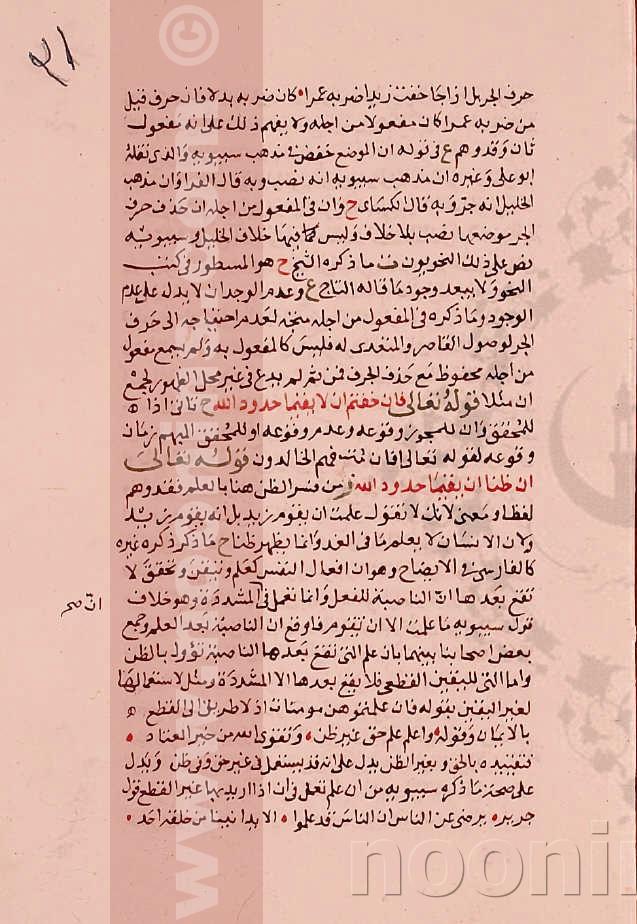 ٢١
حرف الجر بل اذا جا خفت زيدا ضربه عمرا كان ضربه بدلا فان حرف قيل
من ضربه عمرا كان مفعولا من اجله ولا يفهم ذلك على انه مفعول
ثان وقد وهم ع في قوله ان الموضع خفض في مذهب سيبويه والذي نقله
ابو علي وغيره ان مذهب سيبويه انه نصب وبه قال الفرا وان مذهب
الخليل انه جر وبه قال الكساى ح وان في المفعول من اجله ان حذف حرف
الجر موضعها نصب بلا خلاف وليس كما فيها خلاف الخليل وسيبويه
نص على ذلك النحويون ما ذكره الشيخ ح هو المسطور في كتب
النحو ولا يبعد وجود ما قاله التاج ع وعدم الوجدان لا يدل على عدم
الوجود وما ذكره في المفعول من اجله متجه لعدم احتياجه الى حرف
الجر لوصول القاصر والمتعدى له فليس كالمفعول به ولم يسمع مفعول
من اجله مخفوظ مع حذف الجر فمن ثم لم يدع في غير محل الظهور لجمع
ان مثلا قوله تعالى فان خفتم ان لا يقيما حدود الله ح تاتى اذا
للمحقق وان للمجوز وقوعه وعدم وقوعه او للمحقق المبهم زمان
وقوعه لقوله تعالى افان مت فهم الخالدون قوله تعالى
ان ظنا ان يقيما حدود الله ومن فسر الظن هنا بالعلم فقد وهم
لفظا ومعنى لانك لا تقول علمت ان يقوم زيد بل انه يقوم زيد
ولان الانسان لا يعلم ما في الغد وانما يظهر ظنا ح ما ذكر ذكره غيره
كالفارسي في الايضاح وهو ان افعال النفس كعلم وتيقن وتحقق لا
تقع بعدها ان الناصبة للفعل وانما تعمل في المشددة وهو خلاف
ان صح
قول سيبويه ما علمت الا ان تقوم فاوقع ان الناصبة بعد العلم وجمع
بعض اصحابنا بينهما بان علم التي تقع بعدها الناصبة تؤول بالظن
واما التي لليقين القطعي فلا يقع بعدها الا المشددة ومثل لاستعمالها
لغير اليقين بقوله فان علمتموهن مومنات اذ لا طريق الى القطع
بالايمان وقوله واعلم علم حق غير ظن وتقوى الله من خير العتاد
فتقييده بالحق وبغير الظن يدل على انه قد يستعمل في غير حق وفي ظن ويدل
على صحة ما ذكره سيبويه من ان علم تعمل في ان اذا اريد بها غير القطع قول
جرير يرضى عن الناس ان الناس قد علموا الا يدانينا من خلقه احد
www.
©
noonin